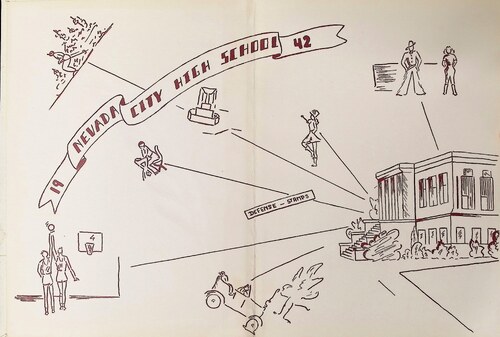 19 NEVADA CITY HIGH SCHOOL 42
DEFENSE - STAMPS